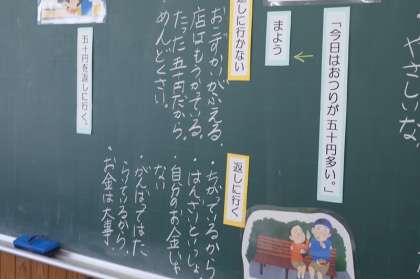 やさしい
「今日はおつりが五十円多い。」
まよう
返しに行かない
おこずかいがふえる。
店はもうかている。
たった五十円だから。
めんどくさい。
返しに行く
・ちがてるから
・はんざいといしょ
・自分のお金いじゃ
ない
・がんばてはた
らいているから、
・お金は大事
五十円を返しに行く。